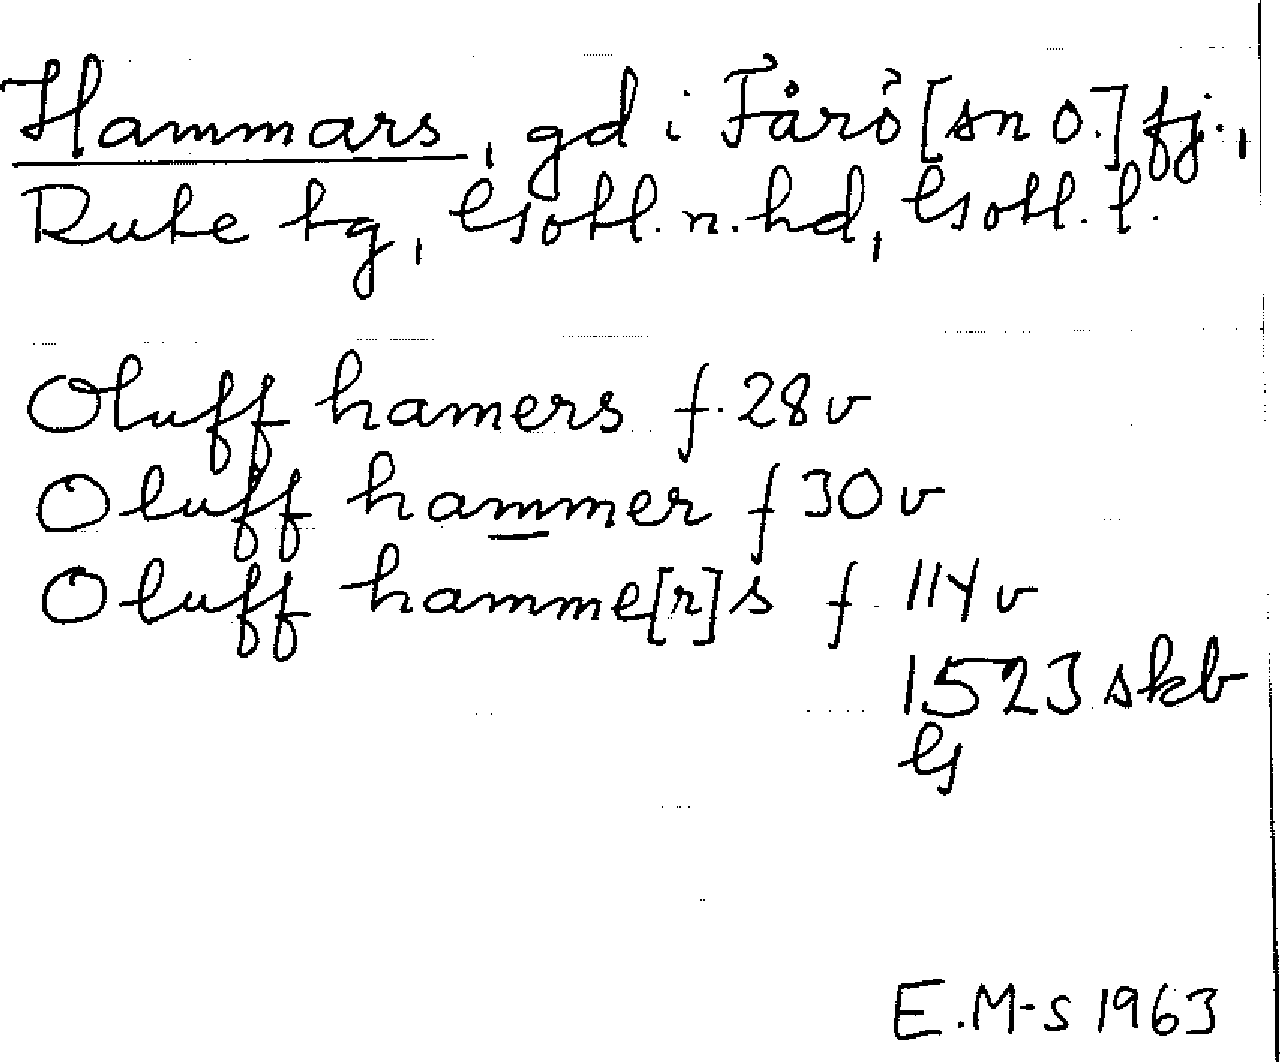 Hammars, gd i Fårö [sn o.] fj.,
Rute tg, Gotl. n. hd, Gotl. l.
Oluff hamers f. 28v
Oluff hammer f 30v
Oluff hamme[r]s f. 114v
1523 skb
G
E.M-s 1963